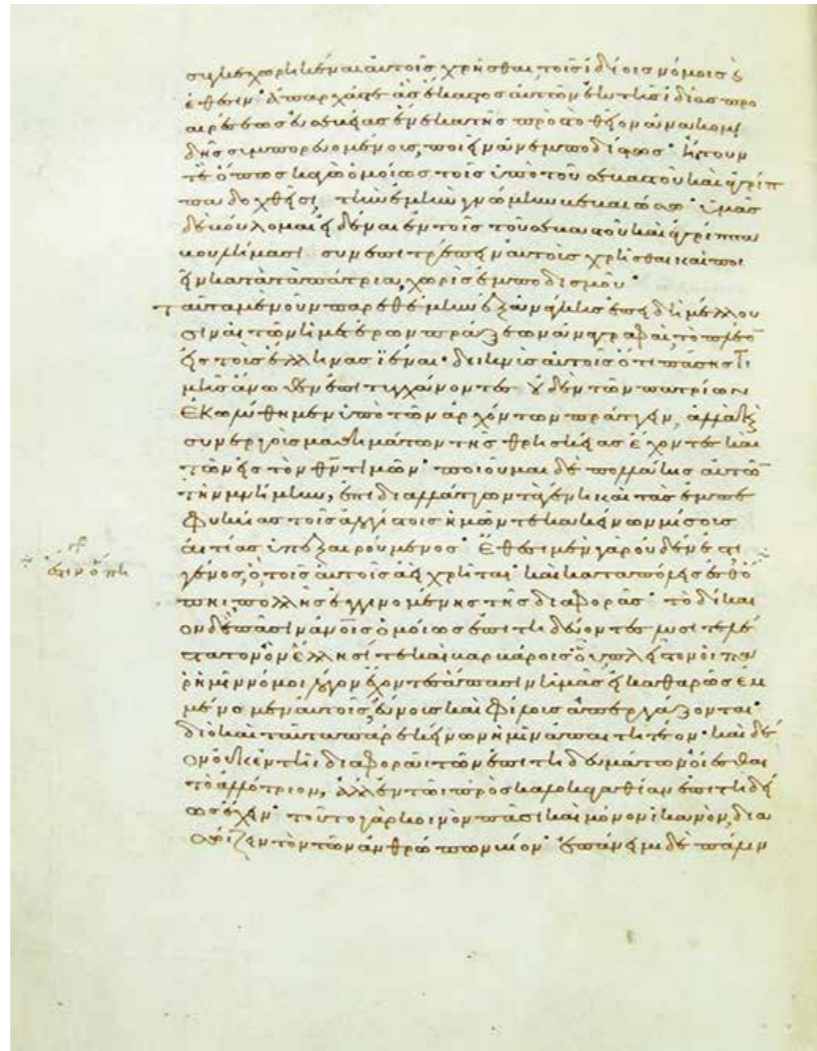 συγκεχωρηκέναι αὐτοῖς χρῆσθαι τοῖς ἰδίοις νόμοις καὶ
ἔθεσιν· ἀπαρχάς τε ἃς ἕκαστος αὐτῶν ἐκ τῆς ἰδίας προ
αιρέσεως εὐσεβείας ἕνεκα τῆς πρὸς τὸ θεῖον ἀνακομι
δῆς συμπορευομένοις, ποιεῖν ἀνεμποδίστως· ἤτουν
τε ὅπως κἀγὼ ὁμοίως τοῖς ὑπὸ τοῦ σεβαστοῦ καὶ ἀγρίπ
πα δοχθεῖσι, τὴν ἐμὴν γνώμην βεβαιώσω· ὑμᾶς
δὲ βούλομαι εἰδέναι ἐν τοῖς τοῦ σεβαστοῦ καὶ ἀγρίππα
βουλήμασι συνεπιτρέπειν αὐτοῖς χρῆσθαι καὶ ποι
εῖν κατὰ τὰ πάτρια, χωρὶς ἐμποδισμοῦ·
ταῦτα μὲν οὖν παρεθέμην ἐξ ἀνάγκης ἐπειδὴ μέλλου
σιν αἱ τῶν ἡμετέρων πράξεων ἀναγραφαὶ, τὸ πλέο̅
εἰς τοὺς ἕλληνας ἰέναι· δεικνὺς αὐτοῖς ὅτι πάσης τι
μῆς ἄνωθεν ἐπιτυγχάνοντες οὐδὲν τῶν πατρίων
ἐκωλύθημεν ὑπὸ τῶν ἀρχόντων πράττειν, ἀλλὰ καὶ
συνεργοῖς μαθημάτων τῆς θρησκείας ἔχοντες καὶ
τῶν εἰς τὸν θ̅ν̅ τιμῶν· ποιοῦμαι δὲ πολλάκις αὐτῶ̅
τὴν μνήμην, ἐπιδιαλλάττων τὰ γένη καὶ τὰς ἐμπε
φυκυίας τοῖς ἀλογίστοις ἡμῶν τε κἀκείνων μίσους
αἰτίας ὑπεξαιρούμενος· ἔθεσι μὲν γὰρ οὐδέν ἐστι
γένος, ὃ τοῖς αὐτοῖς ἀεὶ χρῆται· καὶ κατὰ πόλεις ἔσθ' ὅ
πῃ, πολλῆς ἐγγινομένης τῆς διαφορᾶς· τὸ δίκαι
ον δὲ πᾶσιν ἀν̅οις ὁμοίως ἐπιτηδεύοντες λυσιτελέ
στατον ὂν ἕλλησί τε καὶ βαρβάροις
ρ' ἡμῖν νόμοι λόγον ἔχοντες ἅπασιν ἡμᾶς εἰ καθαρῶς ἐμ
μένομεν αὐτοῖς, εὔνοις καὶ φίλοις ἀπεργάζονται·
διὸ καὶ ταῦτα παρ' ἐκείνων ἡμῖν ἀπαιτητέον· καὶ δέ
ον οὐκ ἐν τῇ διαφορᾷ τῶν ἐπιτηδευμάτων οἴεσθαι
τὸ ἀλλότριον, ἀλλ' ἐν τῶι πρὸς καλοκἀγαθίαν ἐπιτηδεί
ως ἔχειν· τοῦτο γὰρ κοινὸν πᾶσι καὶ μόνον ἱκανὸν, δια
σώζειν τὸν τῶν ἀνθρώπων βίον· ἐπάνειμι δὲ πάλιν